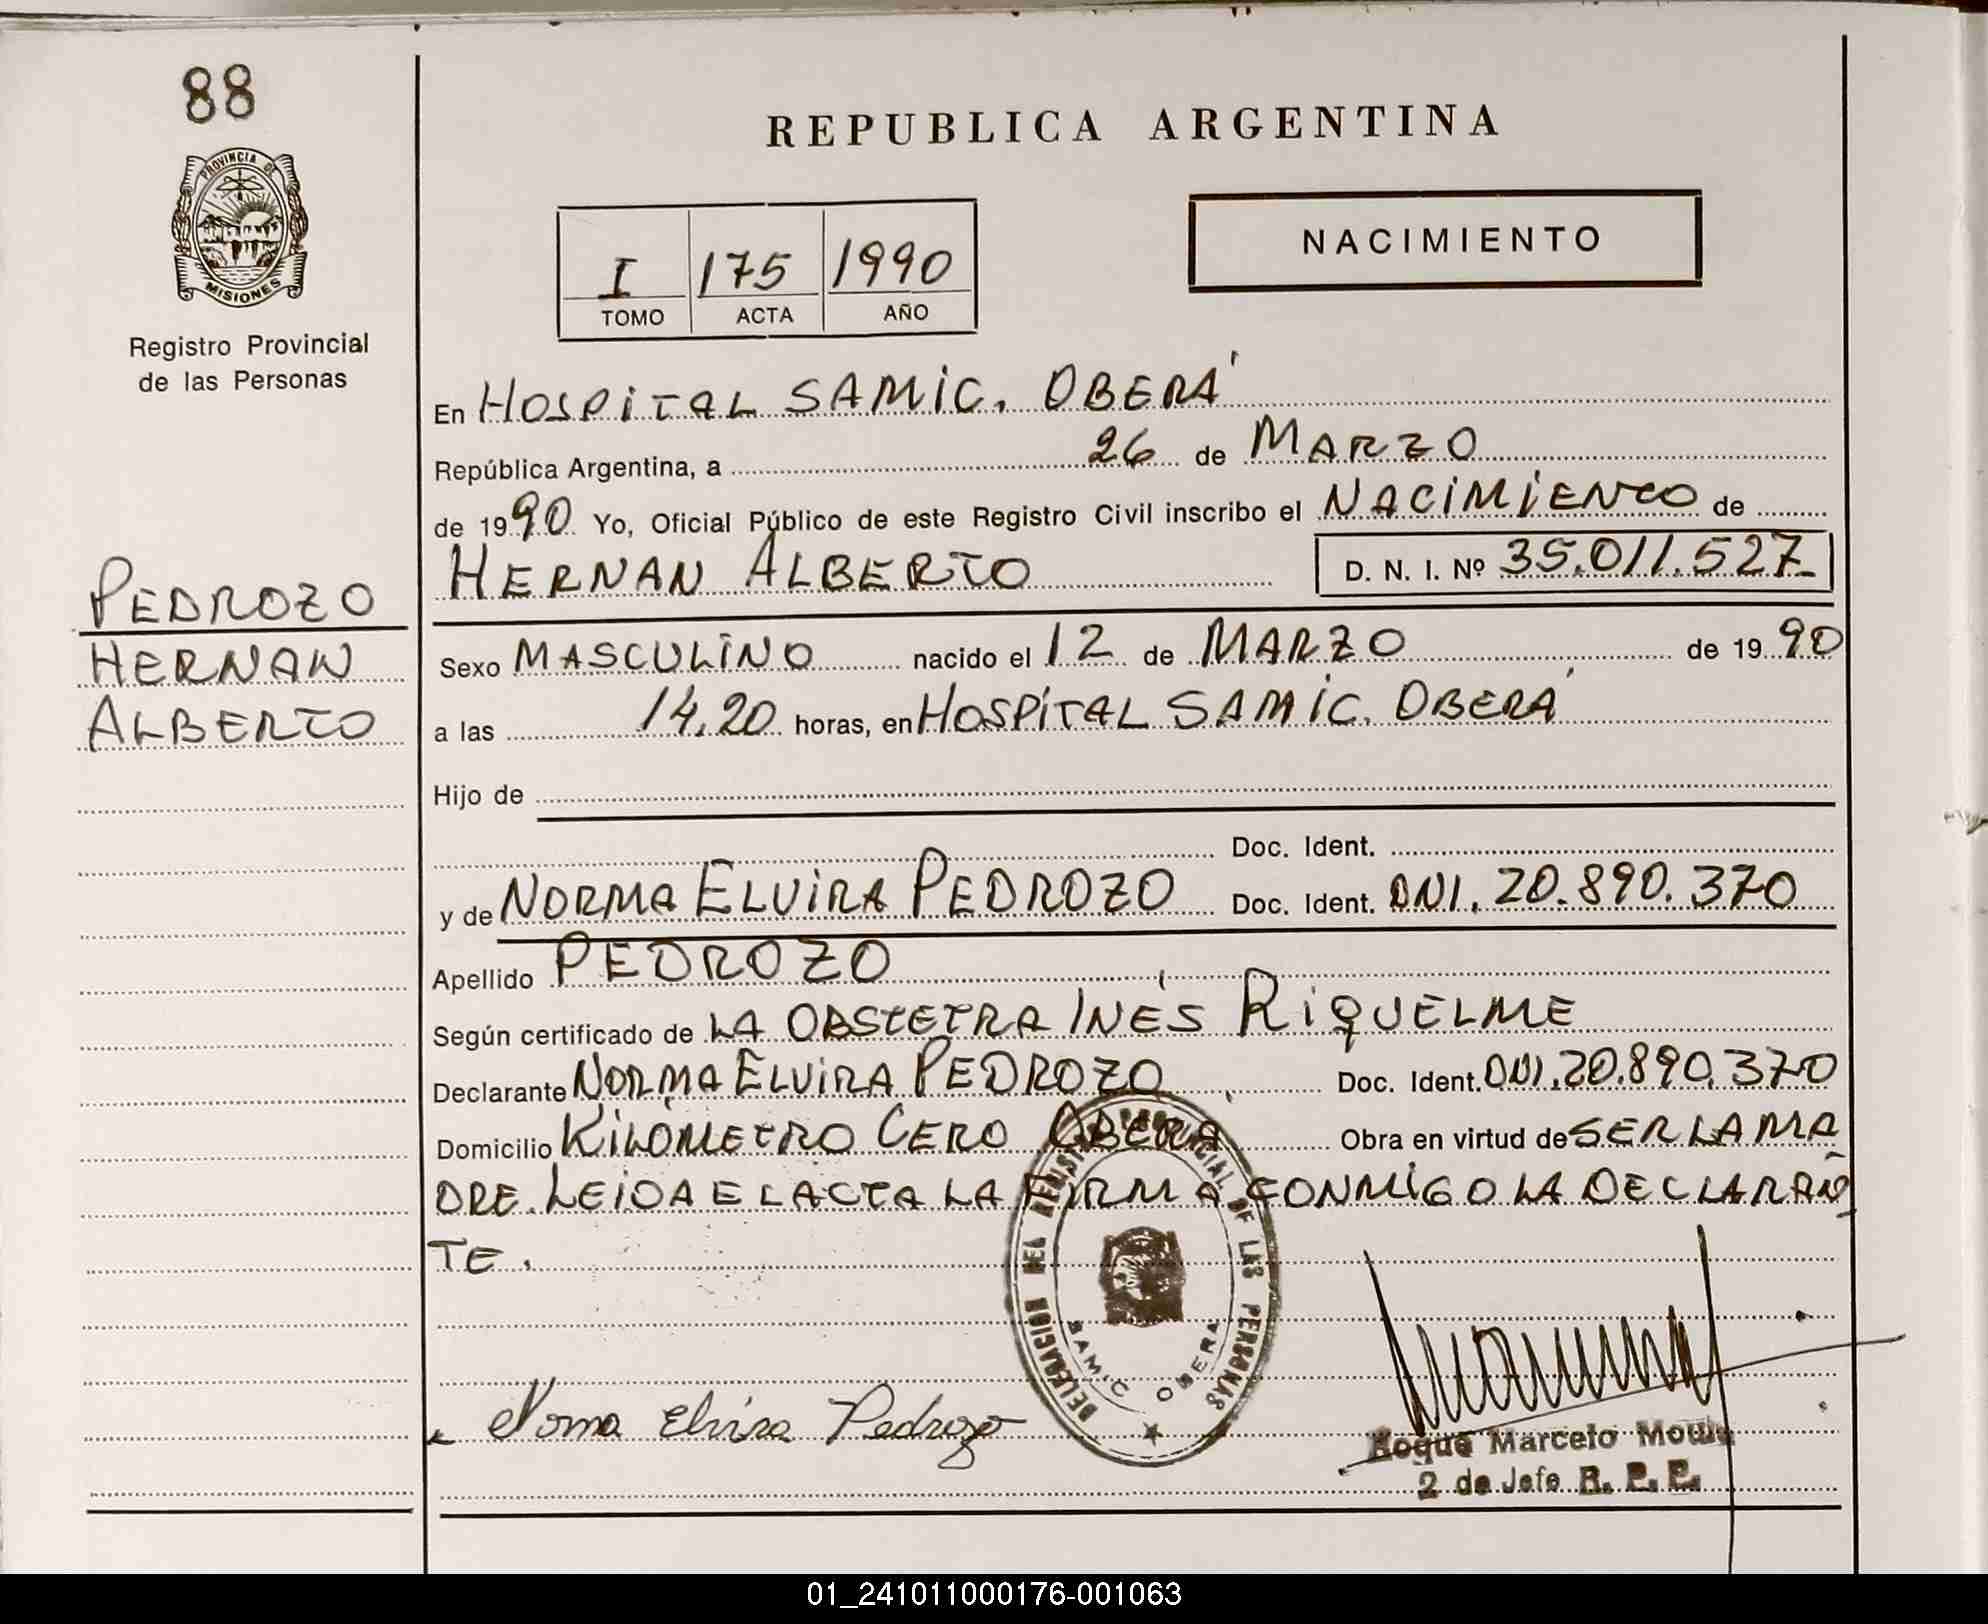 88
PROVINCIA DE
MISIONES
Registro Provincial
de las Personas
REPUBLICA ARGENTINA
I 175 1990
TOMO ACTA AÑO
NACIMIENTO
En HOSPITAL SAMIC. OBERÁ
República Argentina, a 26 de MARZO
de 1990 Yo, Oficial Público de este Registro Civil inscribo el NACIMIENTO de
HERNAN ALBERTO D. N. I. Nº 35.011.527
PEDROZO
HERNAN
ALBERTO
Sexo MASCULINO nacido el 12 de MARZO de 1990
a las 14,20 horas, en HOSPITAL SAMIC. OBERÁ
Hijo de
Doc. Ident.
y de NORMA ELVIRA PEDROZO Doc. Ident. DNI. 20.890.370
Apellido PEDROZO
Según certificado de LA OBSTETRA INÉS RIQUELME
Declarante NORMA ELVIRA PEDROZO Doc. Ident. DNI. 20.890.370
Domicilio KILÓMETRO CERO OBERÁ Obra en virtud de SER LA MA
DRE. LEIDA EL ACTA LA FIRMA CONMIGO LA DECLARAN
TE.
DELEGACION DEL REGISTRO PROVINCIAL DE LAS PERSONAS
SAMIC OBERA
Norma Elvira Pedrozo
Roque Marcelo
2 da Jefe R. P. P.
01_241011000176-001063